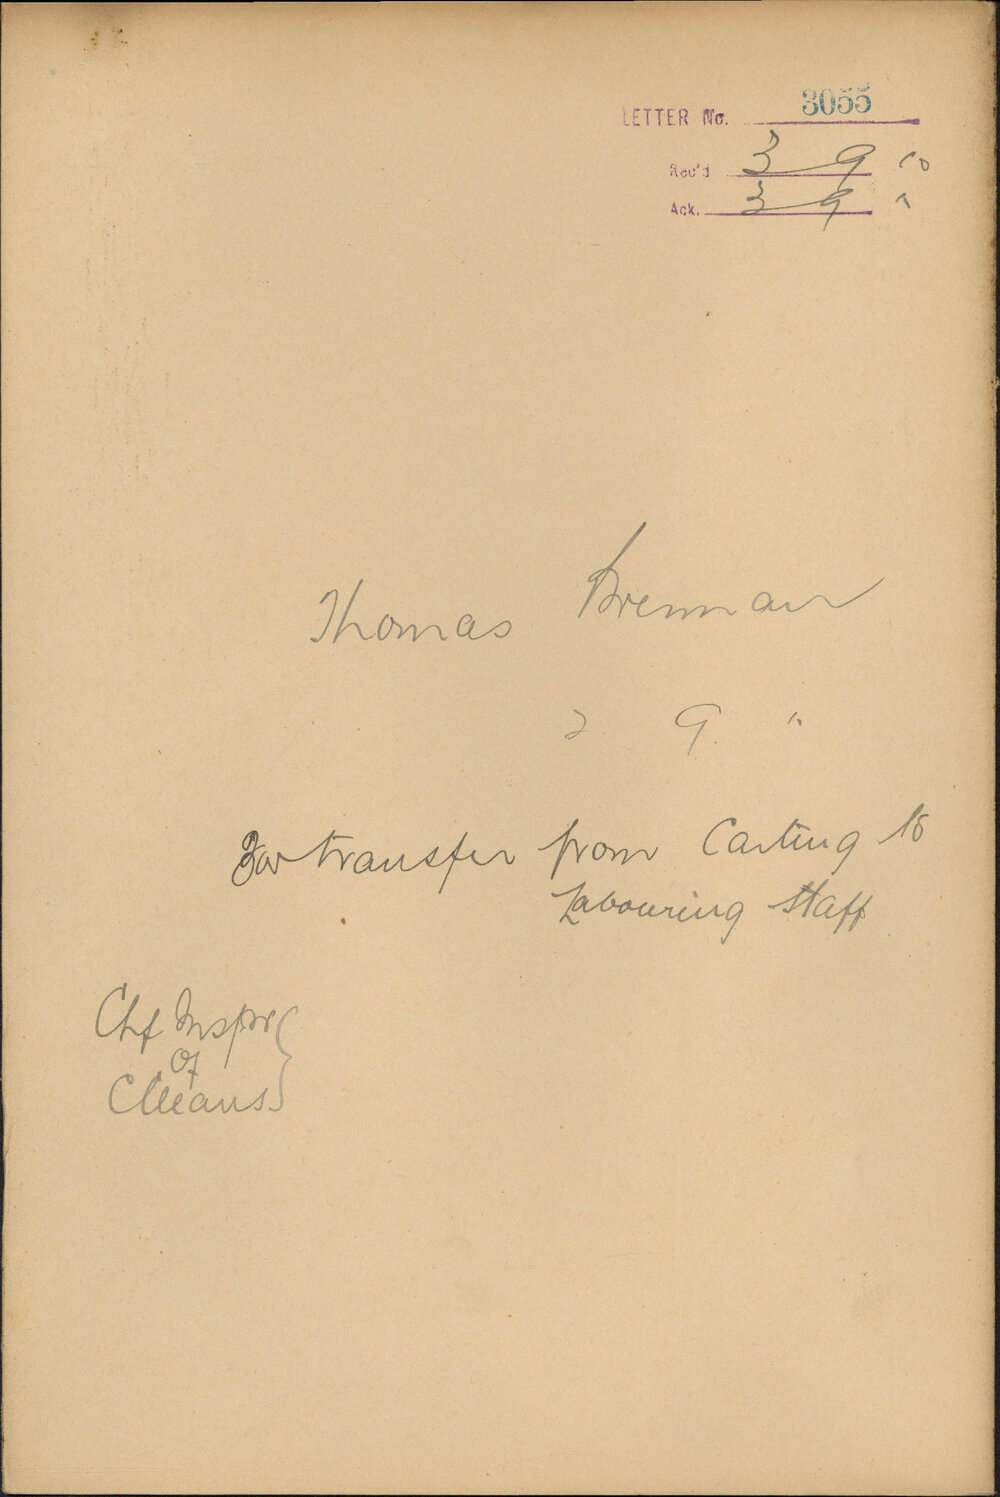 LETTER No. 3055
Rec'd 3 9 10
Ack. 3 9 "
Thomas Brennan
2. 9. "
For transfer from Carting to
Labouring Staff
Chf Inspr
of
Cleans.